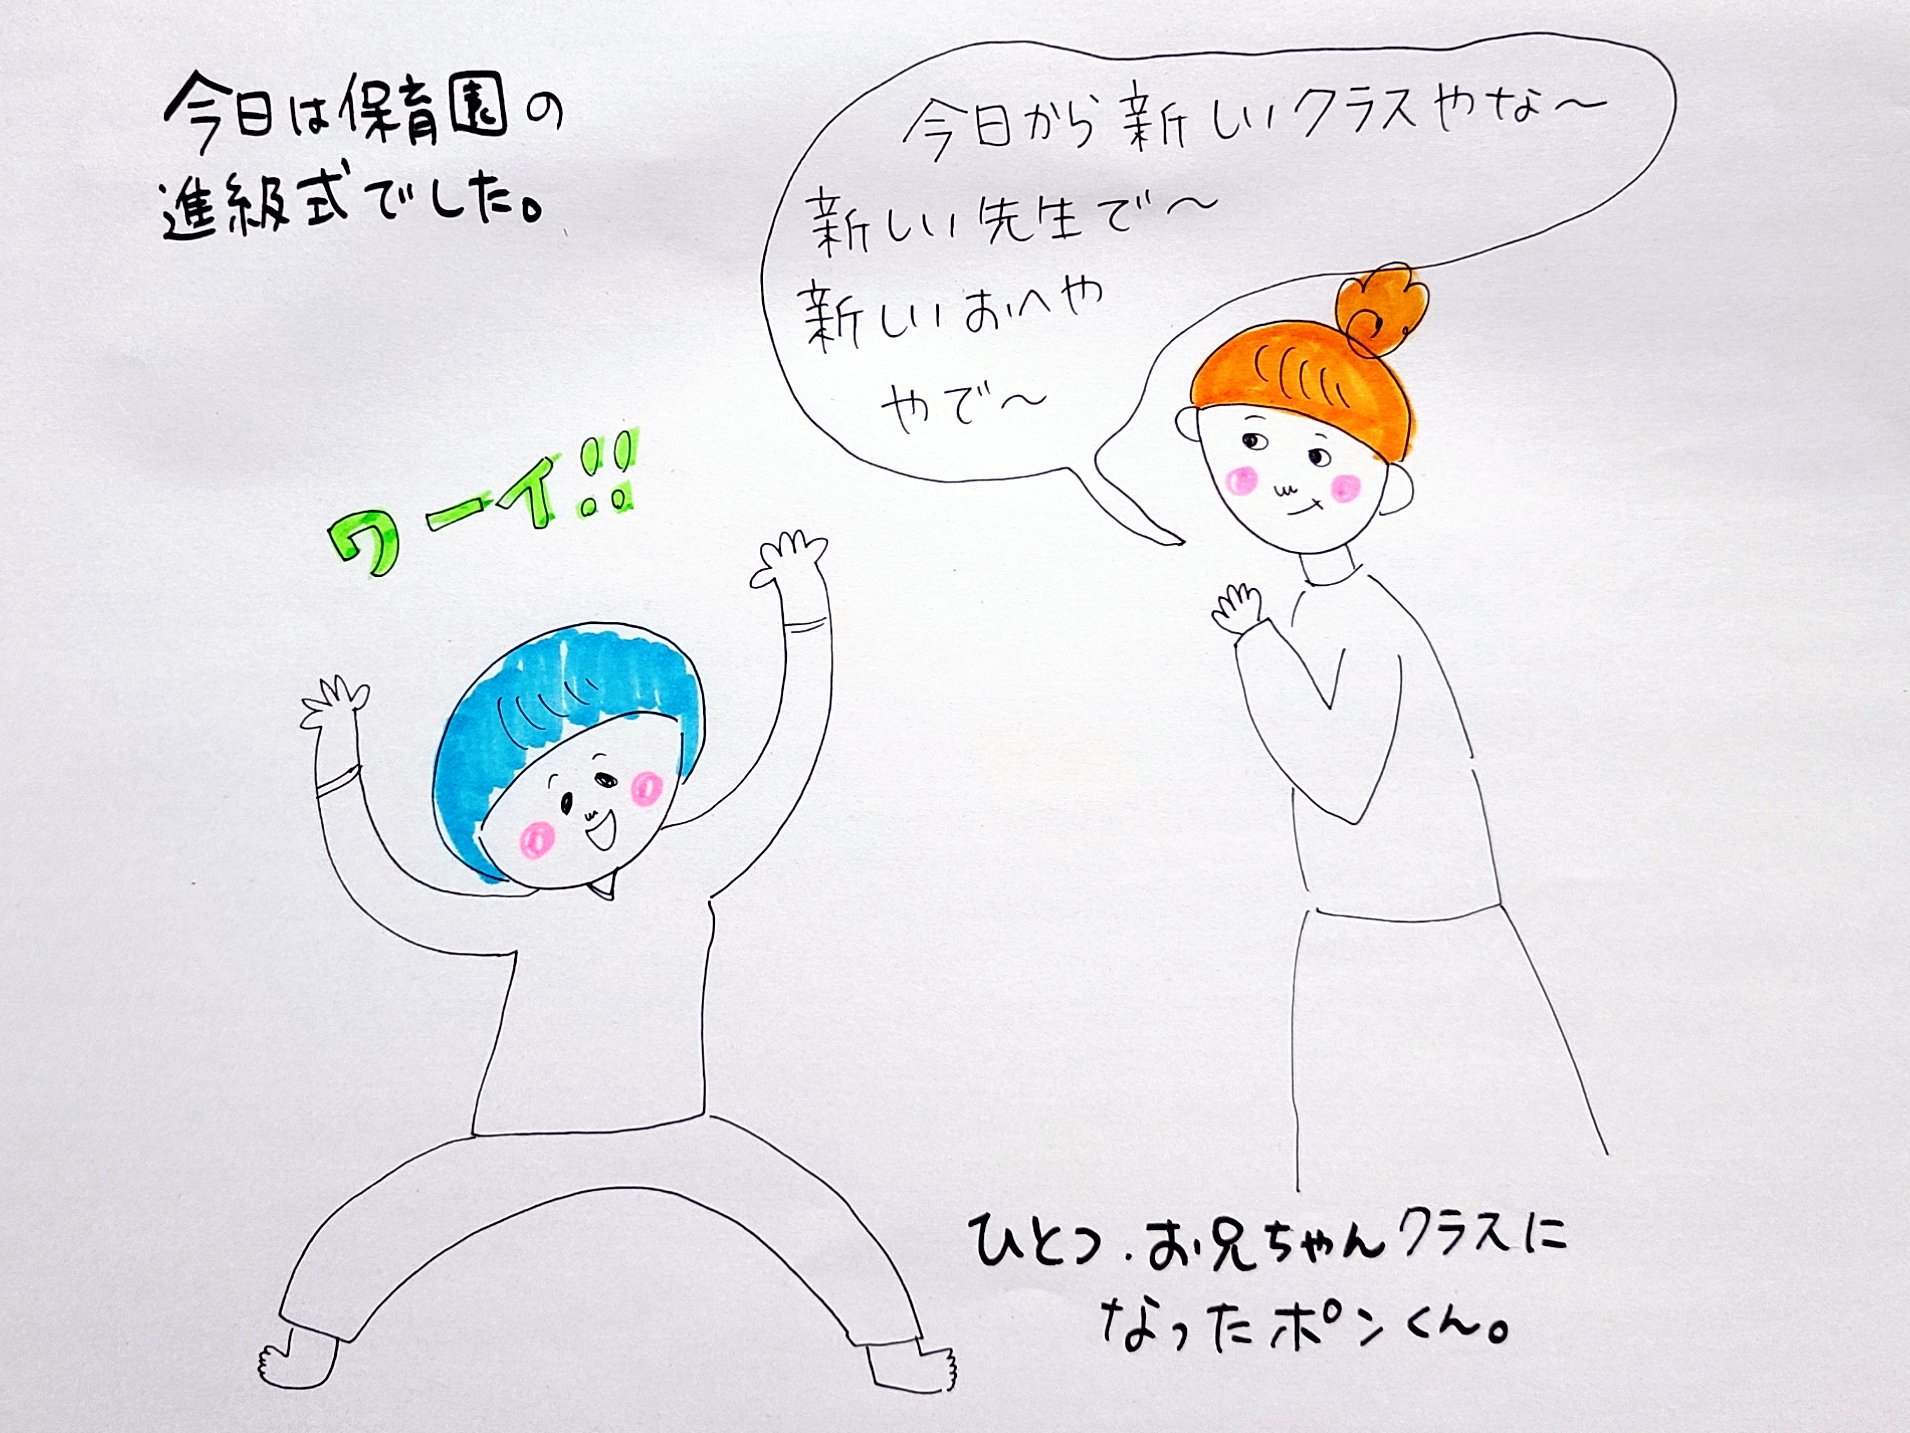 今日は保育園の
進級式でした。
今日から新しいクラスやな〜
新しい先生で〜
新しいおへや
やで〜
ワーイ!!
ひとつ.お兄ちゃんクラスに
なったポンくん。